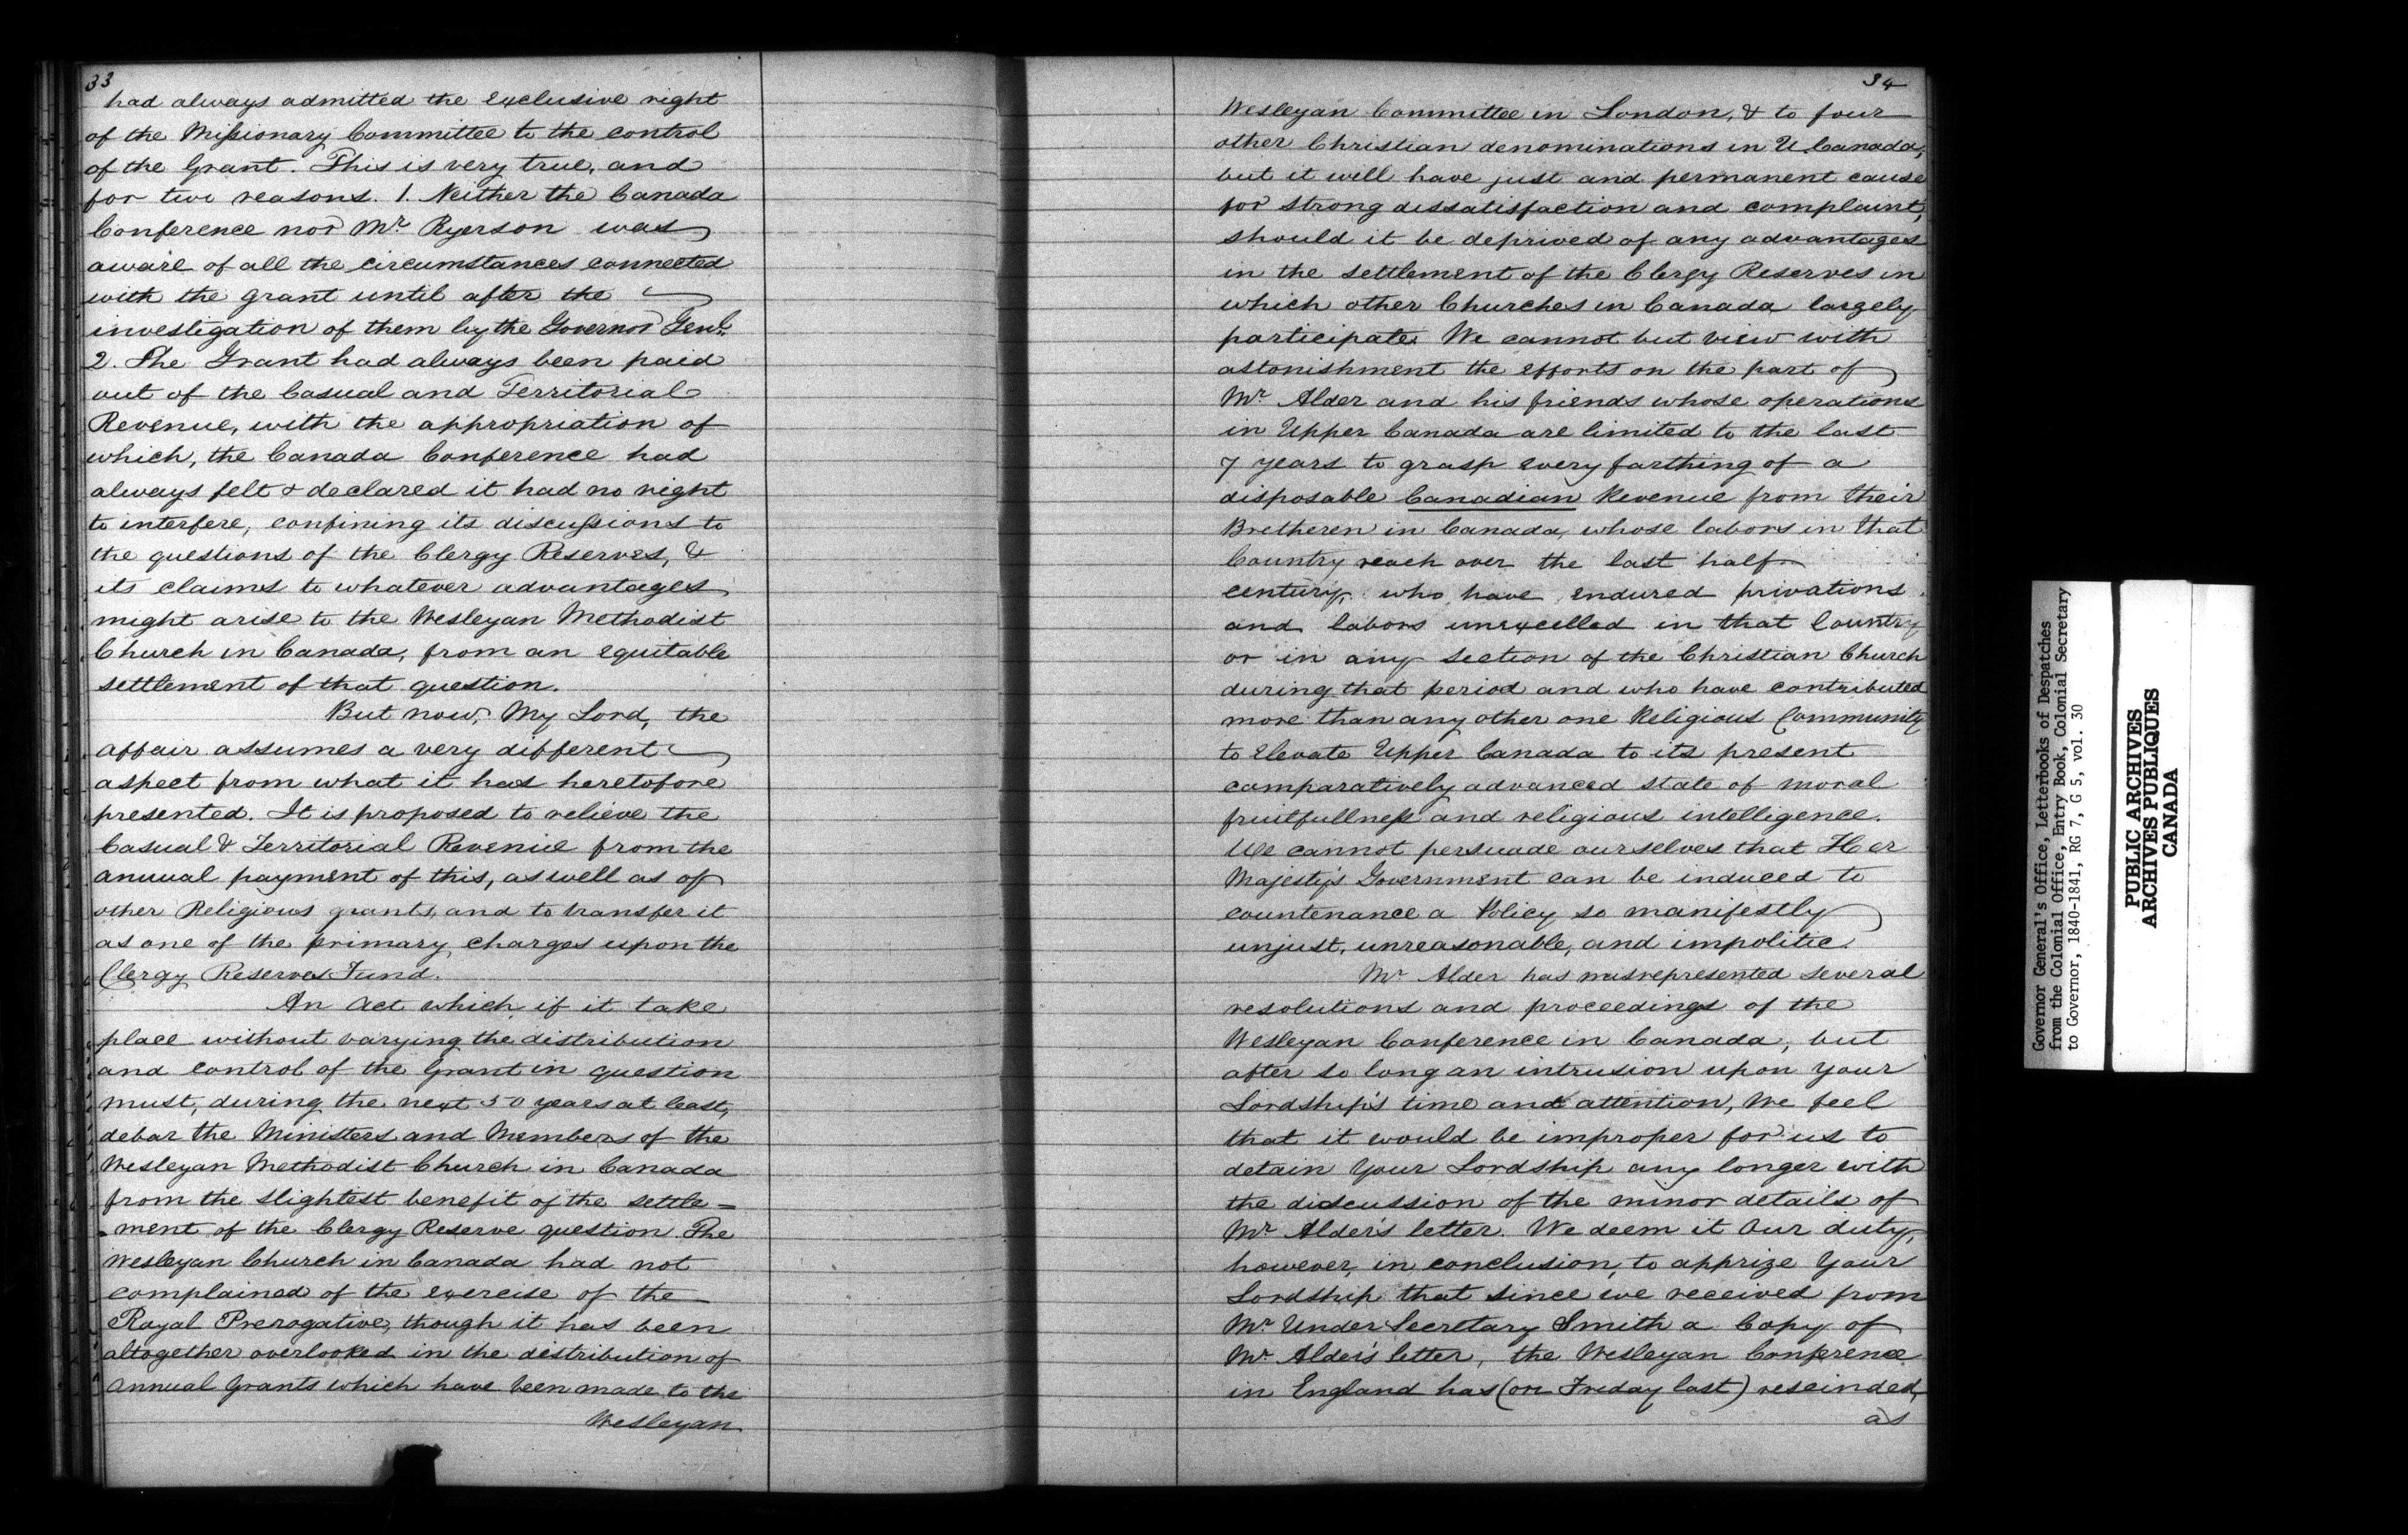 33
had always admitted the exclusive right
of the Missionary Committee to the control
of the Grant. This is very true, and
for two reasons. 1. Neither the Canada
Conference nor Mr Ryerson was
aware of all the circumstances connected
with the grant until after the
investigation of them by the Governor Genl.
2. The Grant had always been paid
out of the Casual and Territorial
Revenue, with the appropriation of
which, the Canada Conference had
always felt & declared it had no right
to interfere, confining its discussions to
the questions of the Clergy Reserves, &
its claims to whatever advantages
might arise to the Wesleyan Methodist
Church in Canada, from an equitable
settlement of that question.
But now, My Lord, the
affair assumes a very different
aspect from what it has heretofore
presented. It is proposed to relieve the
Casual & Territorial Revenue from the
annual payment of this, as well as of
other Religious grants, and to transfer it
as one of the primary charges upon the
Clergy Reserves Fund.
An Act which if it take
place without varying the distribution
and control of the Grant in question
must, during the next 50 years at least,
debar the Ministers and Members of the
Wesleyan Methodist Church in Canada
from the slightest benefit of the settle=
ment of the Clergy Reserve question. The
Wesleyan Church in Canada had not
complained of the exercise of the
Royal Prerogative, though it has been
altogether overlooked in the distribution of
annual Grants which have been made to the
Wesleyan
34
Wesleyan Committee in London, & to four
other Christian denominations in U. Canada,
but it will have just and permanent cause
for strong dissatisfaction and complaint,
should it be deprived of any advantages
in the settlement of the Clergy Reserves in
which other Churches in Canada largely
participate. We cannot but view with
astonishment the efforts on the part of
Mr Alder and his friends whose operations
in Upper Canada are limited to the last
7 years to grasp every farthing of a
disposable Canadian Revenue from their
Bretheren in Canada, whose labors in that
Country reach over the last half
century, who have endured privations
and labors unexcelled in that Country
or in any section of the Christian Church
during that period and who have contributed
more than any other one Religious Community
to elevate Upper Canada to its present
comparatively advanced state of moral
fruitfullness and religious intelligence.
We cannot persuade ourselves that Her
Majesty's Government can be induced to
countenance a Policy so manifestly
unjust, unreasonable, and impolitic.
Mr Alder has misrepresented several
resolutions and proceedings of the
Wesleyan Conference in Canada, but
after so long an intrusion upon your
Lordship's time and attention, We feel
that it would be improper for us to
detain Your Lordship any longer with
the discussion of the minor details of
Mr Alder's letter. We deem it our duty,
however, in conclusion, to apprize Your
Lordship that since we received from
Mr Under Secretary Smith a Copy of
Mr Alder's letter, the Wesleyan Conference
in England has (on Friday last) rescinded,
as
Governor General's Office, Letterbooks of Despatches
from the Colonial Office, Entry Book, Colonial Secretary
to Governor, 1840-1841, RG 7, G 5, vol. 30
PUBLIC ARCHIVES
ARCHIVES PUBLIQUES
CANADA